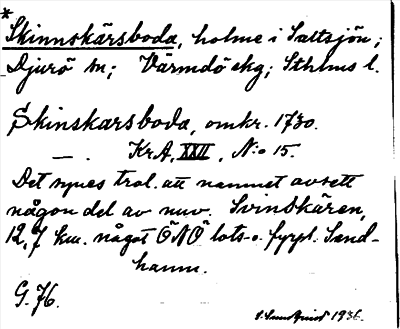 *
Skinnskärsboda, holme i Saltsjön;
Djurö sn; Värmdö skg; Sthlms l.
Skinskarsboda, omkr. 1730.
— . Kr A, XXII, N:o 15.
Det synes trol. att namnet avsett
någon del av nuv. Svinskären,
12,7 km. något ÖNÖ lots- o. fyrpl. Sand-
hamn.
G. 76.
1936.